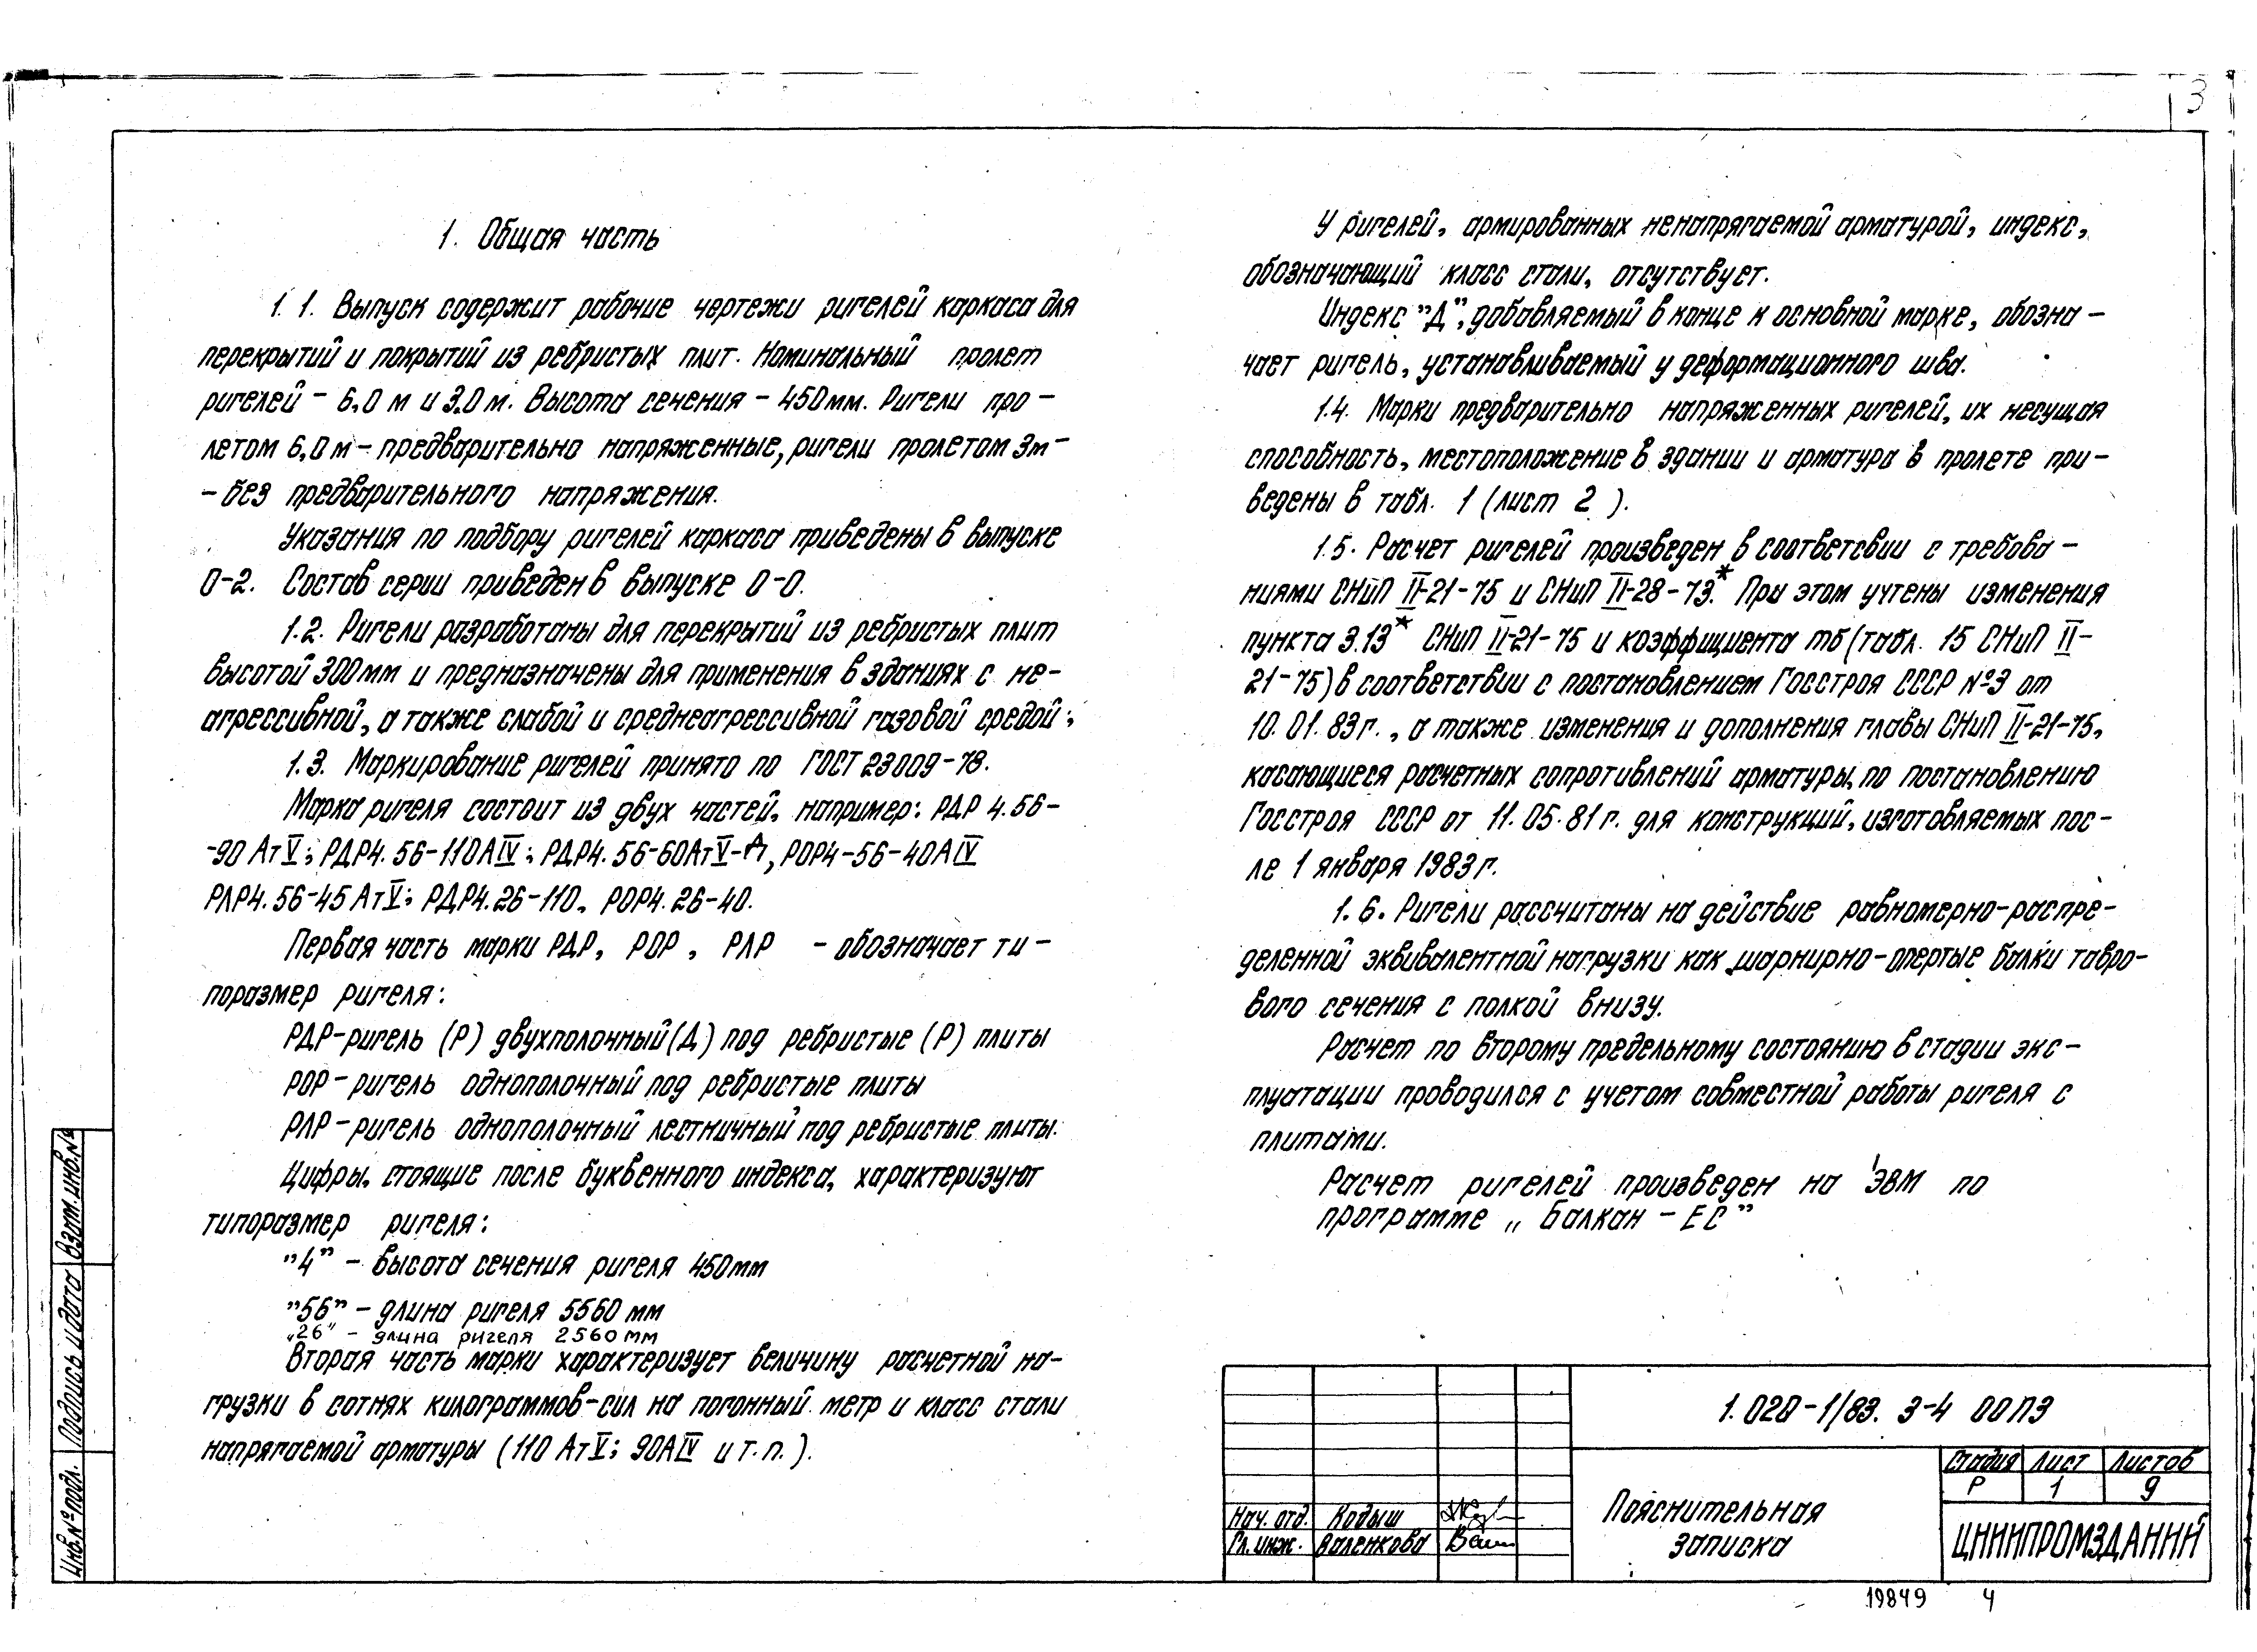 3
1. Общая часть
1.1. Выпуск содержит рабочие чертежи ригелей каркаса для
перекрытий и покрытий из ребристых плит. Номинальный пролет
ригелей – 6,0 м и 3,0 м. Высота сечения – 450мм. Ригели про –
летом 6,0 м – предварительно напряженные, ригели пролетом 3м –
– без предварительного напряжения.
Указания по подбору ригелей каркаса приведены в выпуске
0-2. Состав серии приведен в выпуске 0-0.
1.2. Ригели разработаны для перекрытий из ребристых плит
высотой 300мм и предназначены для применения в зданиях с не-
агрессивной, а также слабой и среднеагрессивной газовой средой.
1.3. Маркирование ригелей принято по ГОСТ 23009-78.
Марка ригеля состоит из двух частей, например: РДР 4.56-
-90 АтV; РДР4.56-110АIV; РДР4.56-60АтV-Д, РОР4-56-40АIV
РЛР4.56-45 АтV; РДР4.26-110, РОР4.26-40.
Первая часть марки РДР, РОР, РЛР – обозначает ти –
поразмер ригеля:
РДР-ригель (Р) двухполочный (Д) под ребристые (Р) плиты
РОР – ригель однополочный под ребристые плиты
РЛР – ригель однополочный лестничный под ребристые плиты.
Цифры, стоящие после буквенного индекса, характеризуют
типоразмер ригеля:
"4" – высота сечения ригеля 450мм
"56" – длина ригеля 5560 мм
„26" – длина ригеля 2560 мм
Вторая часть марки характеризует величину расчетной на-
грузки в сотнях килограммов-сил на погонный метр и класс стали
напрягаемой арматуры (110 АтV; 90АIV и т.п.).
У ригелей, армированных ненапрягаемой арматурой, индекс,
обозначающий класс стали, отсутствует.
Индекс "Д", добавляемый в конце к основной марке, обозна –
чает ригель, устанавливаемый у деформационного шва.
1.4. Марки предварительно напряженных ригелей, их несущая
способность, местоположение в здании и арматура в пролете при –
ведены в табл. 1 (лист 2 ).
1.5. Расчет ригелей произведен в соответсвии с требова –
ниями СНиП II-21-75 и СНиП II-28-73.* При этом учтены изменения
пункта 3.13* СНиП II-21-75 и коэффициента mб (табл. 15 СНиП II-
21-75) в соответствии с постановлением Госстроя СССР №3 от
10.01.83г., а также изменения и дополнения главы СНиП II-21-75,
касающиеся расчетных сопротивлений арматуры, по постановлению
Госстроя СССР от 11.05.81г. для конструкций, изготовляемых пос-
ле 1 января 1983г.
1.6. Ригели рассчитаны на действие равномерно-распре-
деленной эквивалентной нагрузки как шарнирно-опертые балки тавро-
вого сечения с полкой внизу.
Расчет по второму предельному состоянию в стадии экс –
плуатации проводился с учетом совместной работы ригеля с
плитами.
Расчет ригелей произведен на ЭВМ по
программе „Балкан – ЕС"
Инв.№подл.
Подпись и дата
Взам.инв.№
1.020-1/83. 3-4 00ПЗ
Стадия Лист Листов
Р 1 9
Пояснительная
записка
ЦНИИПРОМЗДАНИЙ
Нач. отд. Кодыш
Гл. инж.Валенкова
19849 4